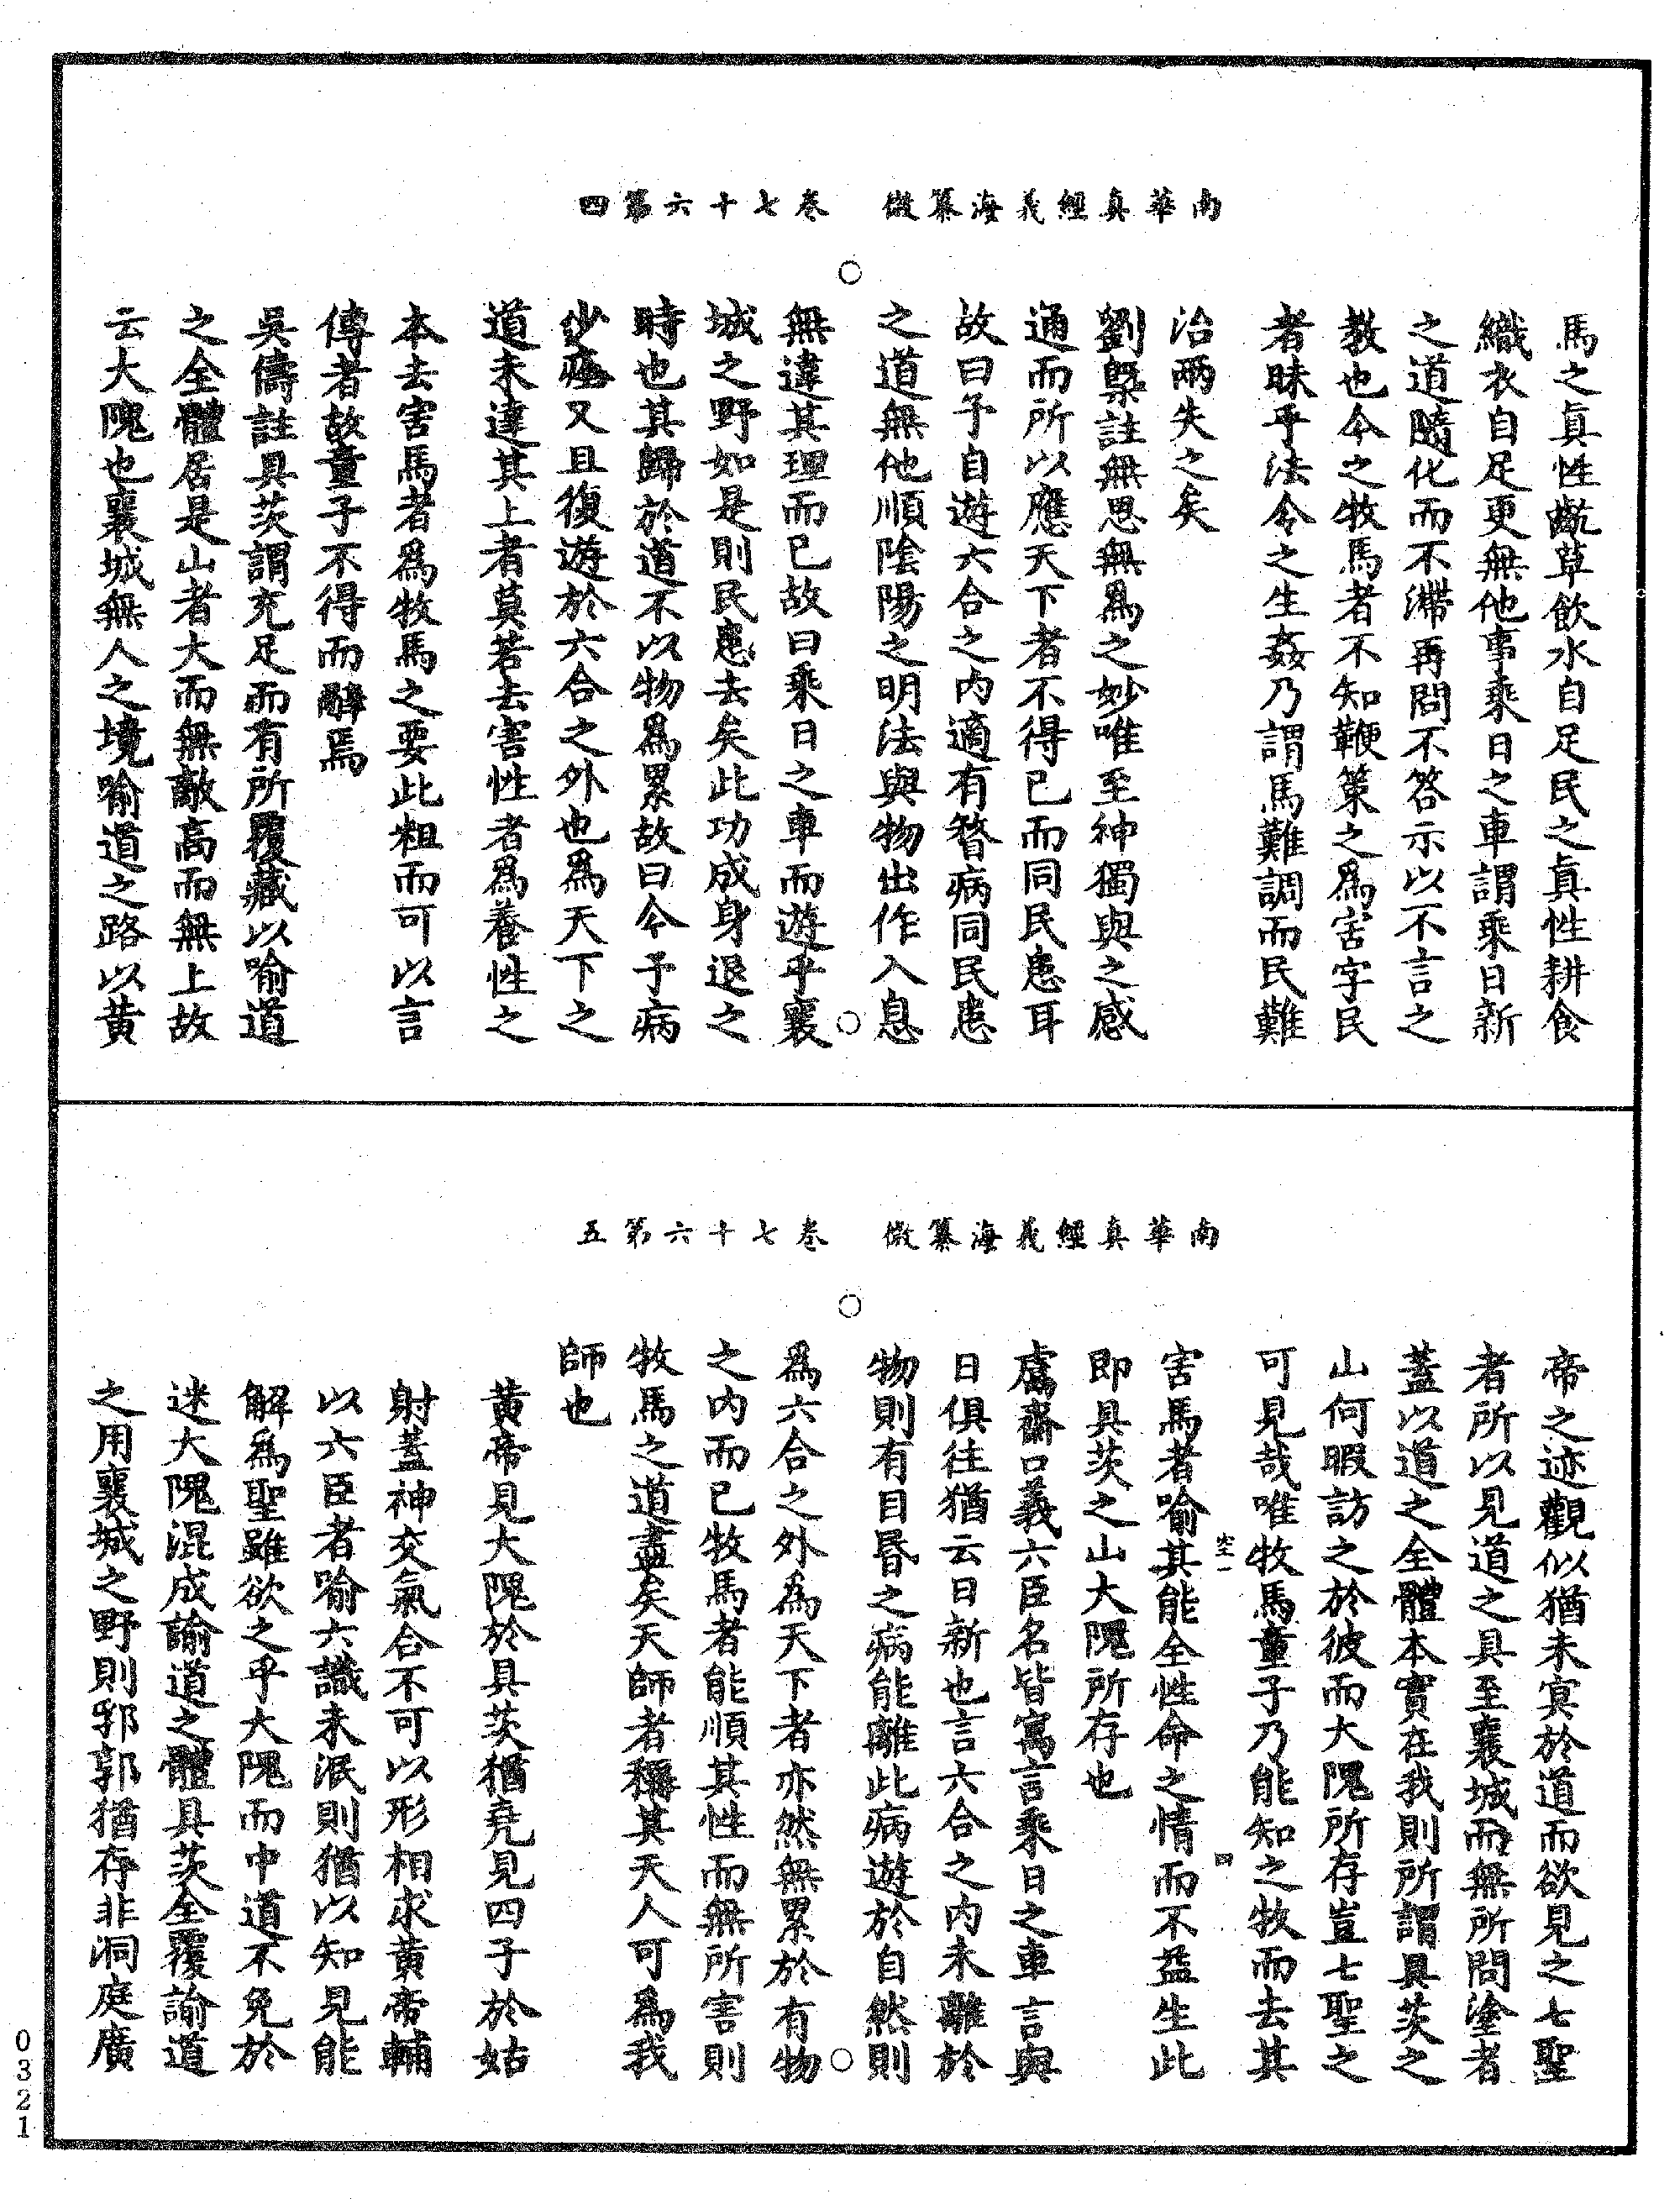 南華真經義海纂微 卷七十六第四
馬之真性齕草飲水自足民之真性耕食
織衣自足更無他事乘日之車謂乘日新
之道隨化而不滯再問不答示以不言之
教也今之牧馬者不知鞭策之為害字民
者昧乎法令之生姦乃謂馬難調而民難
治兩失之矣
劉槩註無思無為之妙唯至神獨與之感
通而所以應天下者不得已而同民患耳
故曰予自遊六合之內適有瞀病同民患
之道無他順陰陽之明法與物出作入息
無違其理而已故曰乘日之車而遊乎襄
城之野如是則民患去矣此功成身退之
時也其歸於道不以物為累故曰今予病
少痊又且復遊於六合之外也為天下之
道未達其上者莫若去害性者為養性之
本去害馬者為牧馬之要此粗而可以言
傳者故童子不得而辭焉
吳儔註具茨謂充足而有所覆藏以喻道
之全體居是山者大而無敵高而無上故
云大隗也襄城無人之境喻道之路以黃
南華真經義海纂微 卷七十六第五
帝之迹觀似猶未冥於道而欲見之七聖
者所以見道之具至襄城而無所問塗者
蓋以道之全體本實在我則所謂具茨之
山何暇訪之於彼而大隗所存豈七聖之
可見哉唯牧馬童子乃能知之牧而去其
害馬者喻其能全性命之情而不益生此
即具茨之山大隗所存也
鬳齋口義六臣名皆寓言乘日之車言與
日俱往猶云日新也言六合之內未離於
物則有目昏之病能離此病遊於自然則
為六合之外為天下者亦然無累於有物
之內而已牧馬者能順其性而無所害則
牧馬之道盡矣天師者稱其天人可為我
師也
黃帝見大隗於具茨猶堯見四子於姑
射蓋神交氣合不可以形相求黃帝輔
以六臣者喻六識未泯則猶以知見能
解為聖雖欲之乎大隗而中道不免於
迷大隗混成諭道之體具茨全覆諭道
之用襄城之野則郛郭猶存非洞庭廣
0321